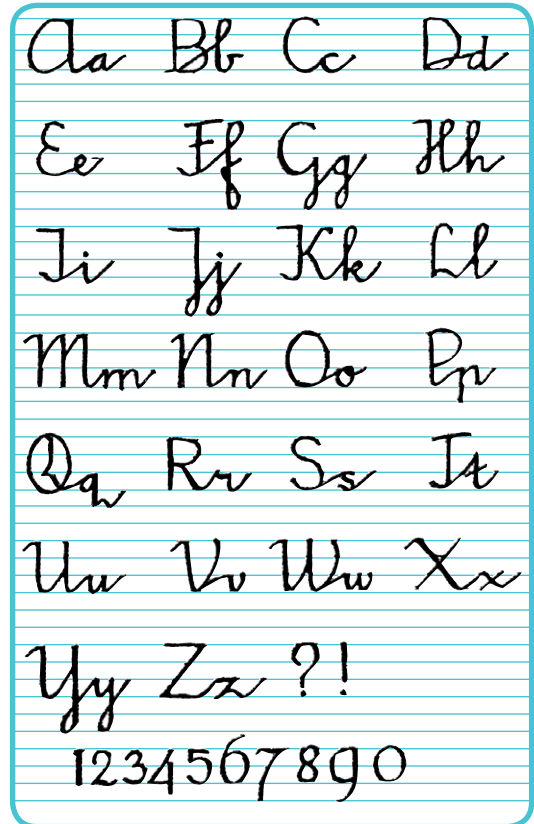 Aa Bb Cc Dd
Ee Ff Gg Hh
Ii Jj Kk Ll
Mm Nn Oo Pp
Qq Rr Ss Tt
Uu Vv Ww Xx
Yy Zz ? !
1234567890